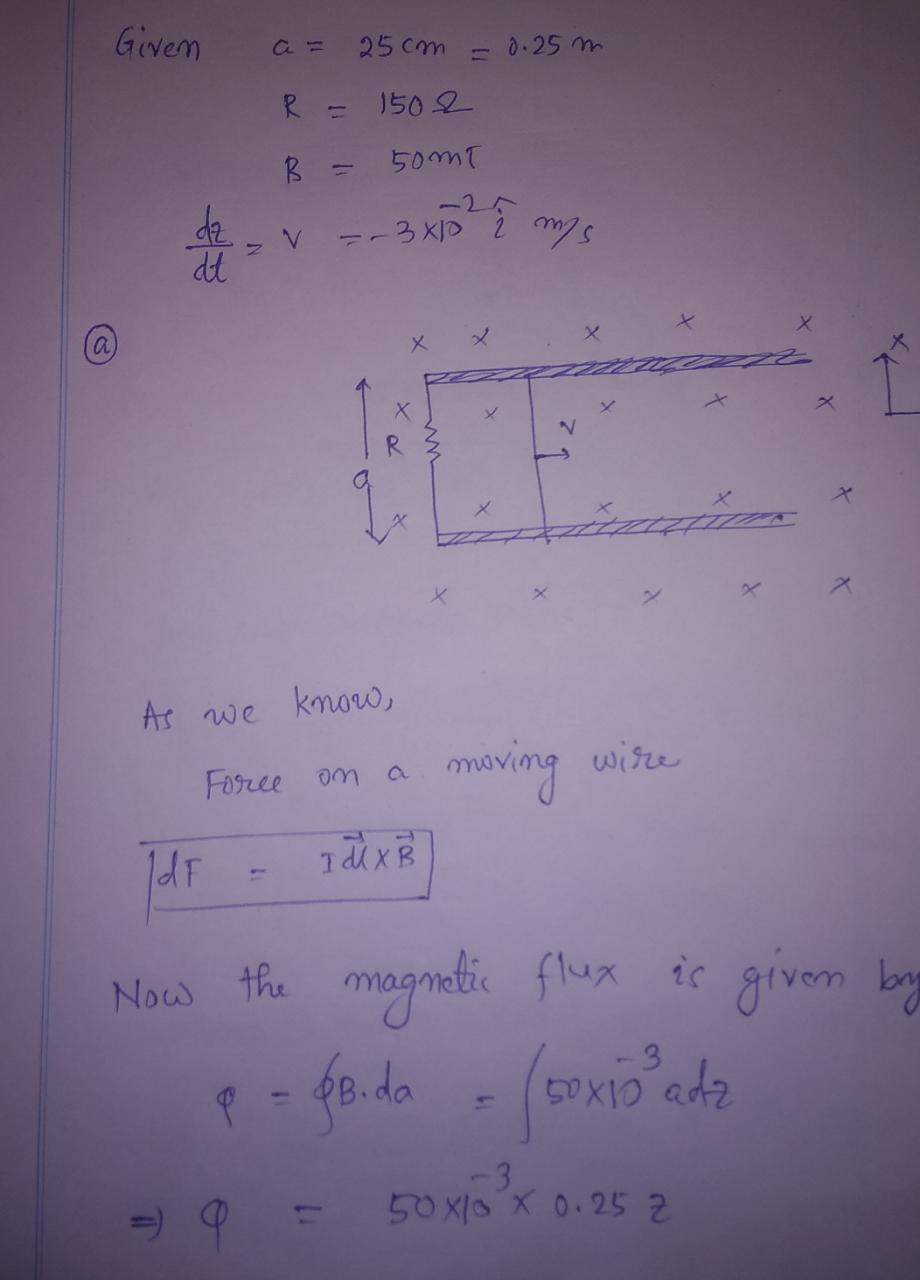 Given a = 25 cm = 0.25 m
R = 150 Ω
B = 50mT
dz/dt = v = -3×10⁻² î m/s
(a)
x x x x x
x
x x x x x
R
v
a
x x x x x
x x x x x
As we know,
Force on a moving wire
dF = I d\vec{l} × \vec{B}
Now the magnetic flux is given by
φ = ∮B.da = ∫50×10⁻³ adz
⇒ φ = 50×10⁻³ × 0.25 z